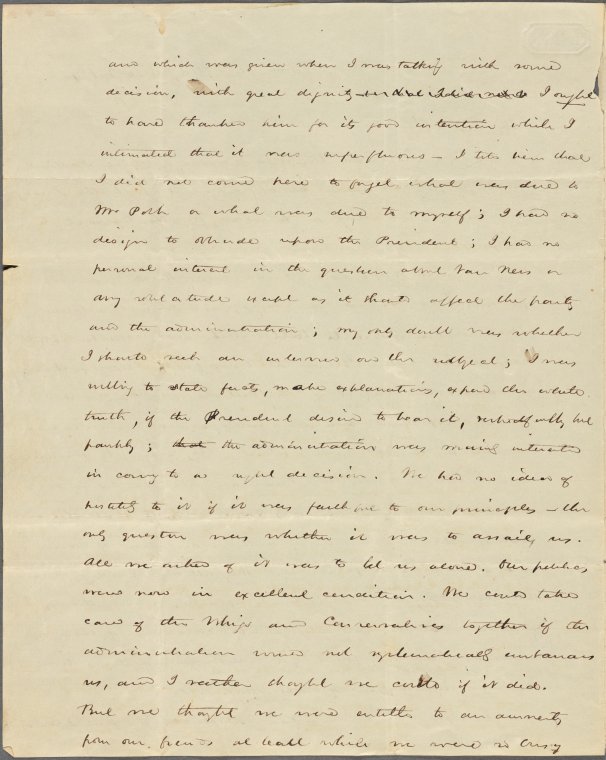 and which was given when I was talking with some
decision, with great dignity I ought
to have thanked him for its good intention while I
intimated that it was superfluous – I told him that
I did not come here to forget what was due to
Mr Polk or what was due to myself; I had no
design to obtrude upon the President; I had no
personal interest in the question about Van Ness or
any solicitude except as it should affect the party
and the administration; my only doubt was whether
I should seek an interview on this subject; I was
willing to state facts, make explanations, expose the whole
truth, if the President desired to hear it, respectfully but
frankly; that the administration was mainly interested
in coming to a right decision. We had no idea of
hostility to it if it was faithful to our principles – the
only question was whether it was to assail us.
All we asked of it was to let us alone. Our politics
were now in excellent condition. We could take
care of the Whigs and Conservatives together if the
administration would not systematically embarrass
us, and I rather thought we could if it did.
But we thought we were entitled to an amnesty
from our friends at least while we were so busy